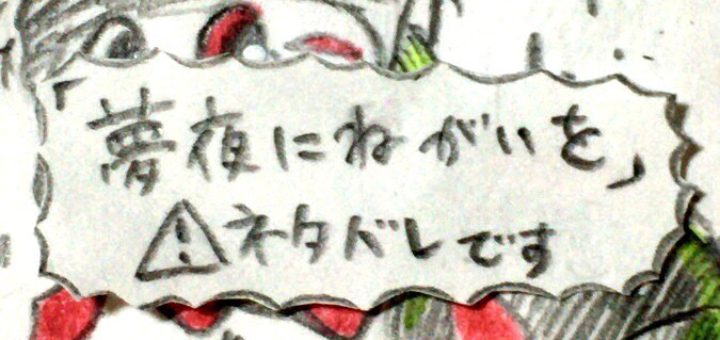 「夢夜にねがいを」
⚠ネタバレです